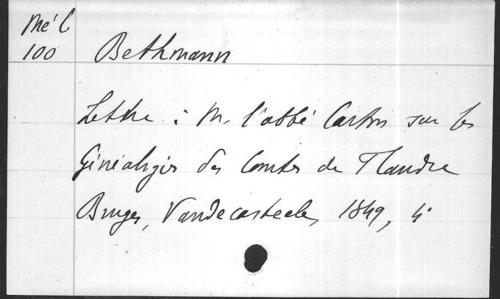 Mél
100 Bethmann
Lettre à M. l'abbé Carton sur les
Généalogies des Comtes de Flandre
Bruges, Vandecasteele, 1849, 4°